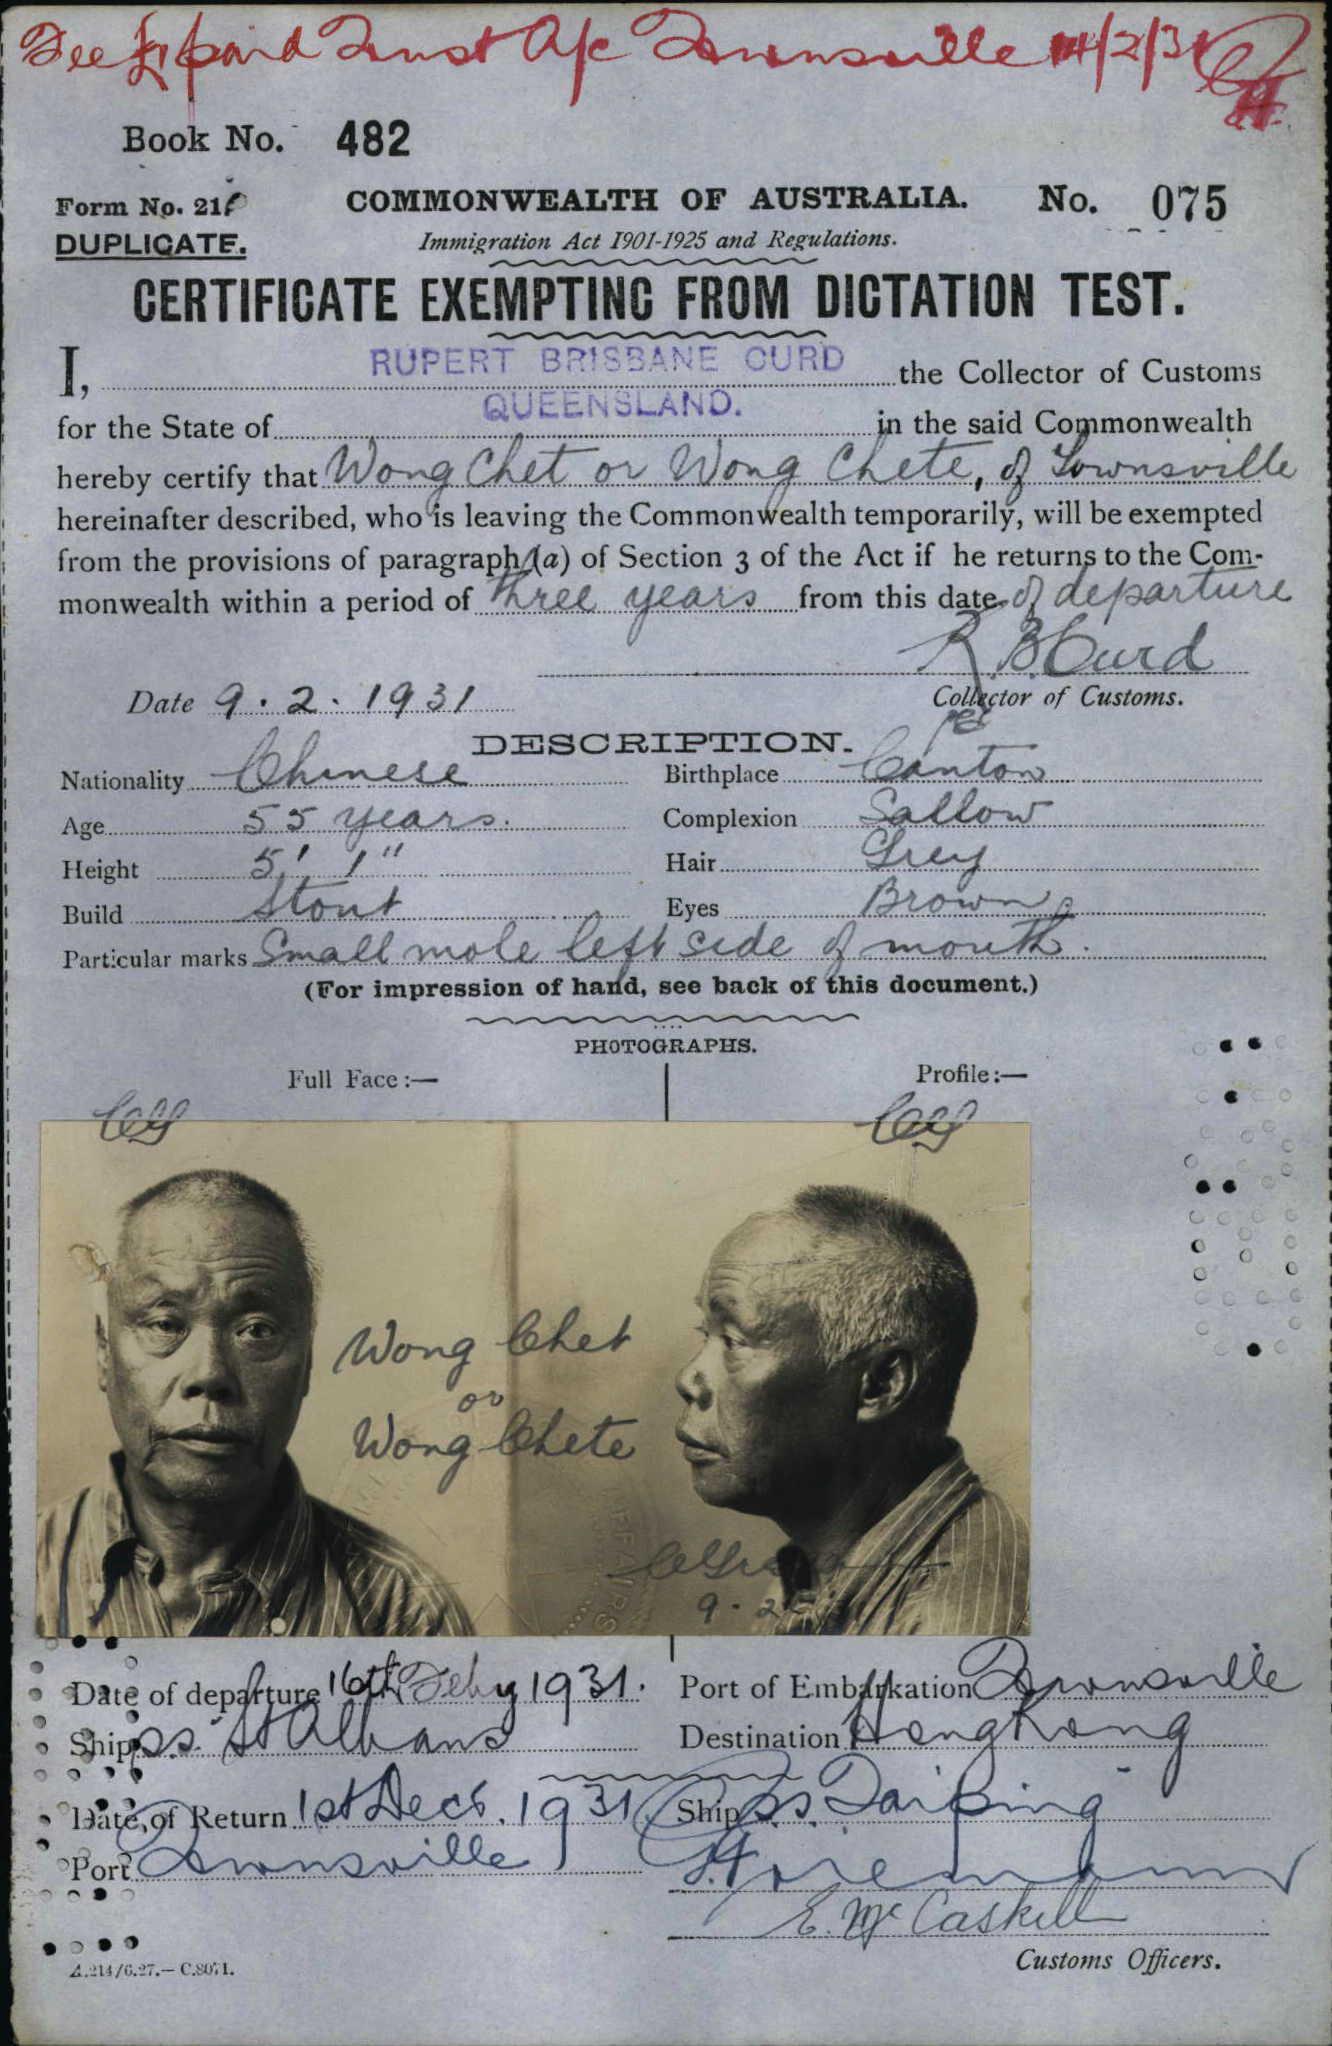 Fee £1 paid Trust A/c Townsville 14/2/31
Book No. 482
Form No. 21
DUPLICATE.
COMMONWEALTH OF AUSTRALIA. No. 075
Immigration Act 1901-1925 and Regulations.
CERTIFICATE EXEMPTING FROM DICTATION TEST.
I, RUPERT BRISBANE CURD the Collector of Customs
for the State of QUEENSLAND. in the said Commonwealth
hereby certify that Wong Chet or Wong Chete, of Townsville
hereinafter described, who is leaving the Commonwealth temporarily, will be exempted
from the provisions of paragraph (a) of Section 3 of the Act if he returns to the Com-
monwealth within a period of three years from this date of departure
R. B. Curd
Date 9.2.1931 Collector of Customs.
per
DESCRIPTION.
Nationality Chinese Birthplace Canton
Age 55 years. Complexion Sallow
Height 5' 1" Hair Grey
Build Stout Eyes Brown
Particular marks Small mole left side of mouth.
(For impression of hand, see back of this document.)
PHOTOGRAPHS.
Full Face:— Profile:—
Wong Chet
or
Wong Chete
Date of departure 16th Feby 1931. Port of Embarkation Townsville
Ship ss. St Albans Destination Hong Kong
Date of Return 1st Decr. 1931 Ship ss. Taiping
Port Townsville
E. McCaskill
Customs Officers.
A.214/6.27.—C.8071.